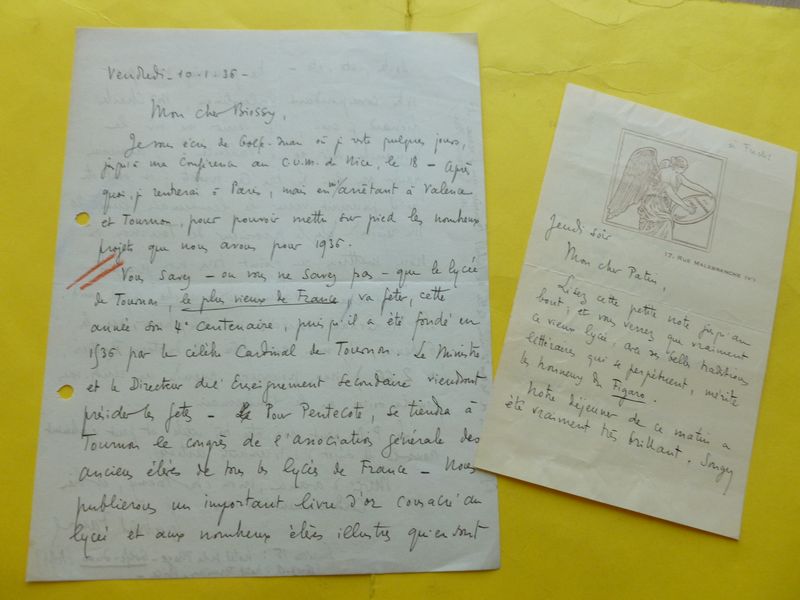 Vendredi - 10.1.36 -
Mon cher Biossy,
Je vous écris de Golfe-Juan où je reste quelques jours,
jusqu'à ma Conférence au C.U.M. de Nice, le 18 - Après
quoi, je rentrerai à Paris, mais en m'arrêtant à Valence
et Tournon, pour pouvoir mettre sur pied les nombreux
projets que nous avons pour 1936.
Vous savez - ou vous ne savez pas - que le lycée
de Tournon, le plus vieux de France, va fêter, cette
année son 4e centenaire, puisqu'il a été fondé en
1536 par le célèbre Cardinal de Tournon. Le Ministre
et le Directeur de l'Enseignement secondaire viendront
présider les fêtes - Pour Pentecôte, se tiendra à
Tournon le congrès de l'association générale des
anciens élèves de tous les lycées de France - Nous
publierons un important livre d'or consacré au
lycée et aux nombreux élèves illustres qui en sont
17, RUE MALEBRANCHE (Ve)
Jeudi soir
Mon cher Patin,
Lisez cette petite note jusqu'au
bout ; et vous verrez que vraiment
ce vieux lycée, avec ses belles traditions
littéraires qui se perpétuent, mérite
les honneurs du Figaro.
Notre déjeuner de ce matin a
été vraiment très brillant. Songez